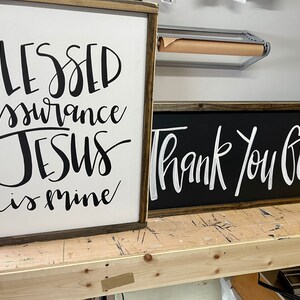 LESSED
ssurance
JESUS
is mine
Thank You